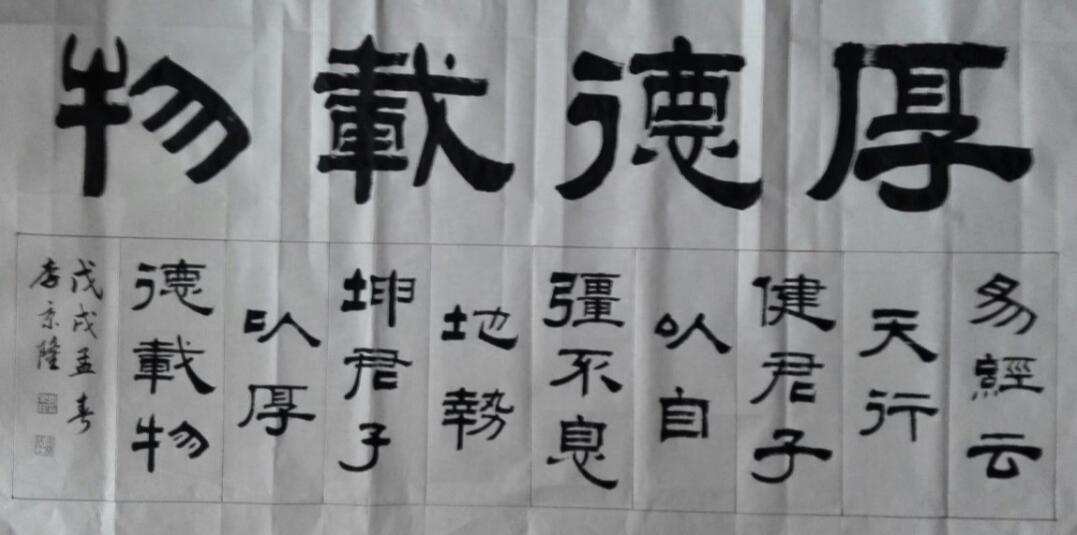 厚德載物
易經云
天行
健君子
以自
彊不息
地勢
坤君子
以厚
德載物
戊戌孟春
李京隆